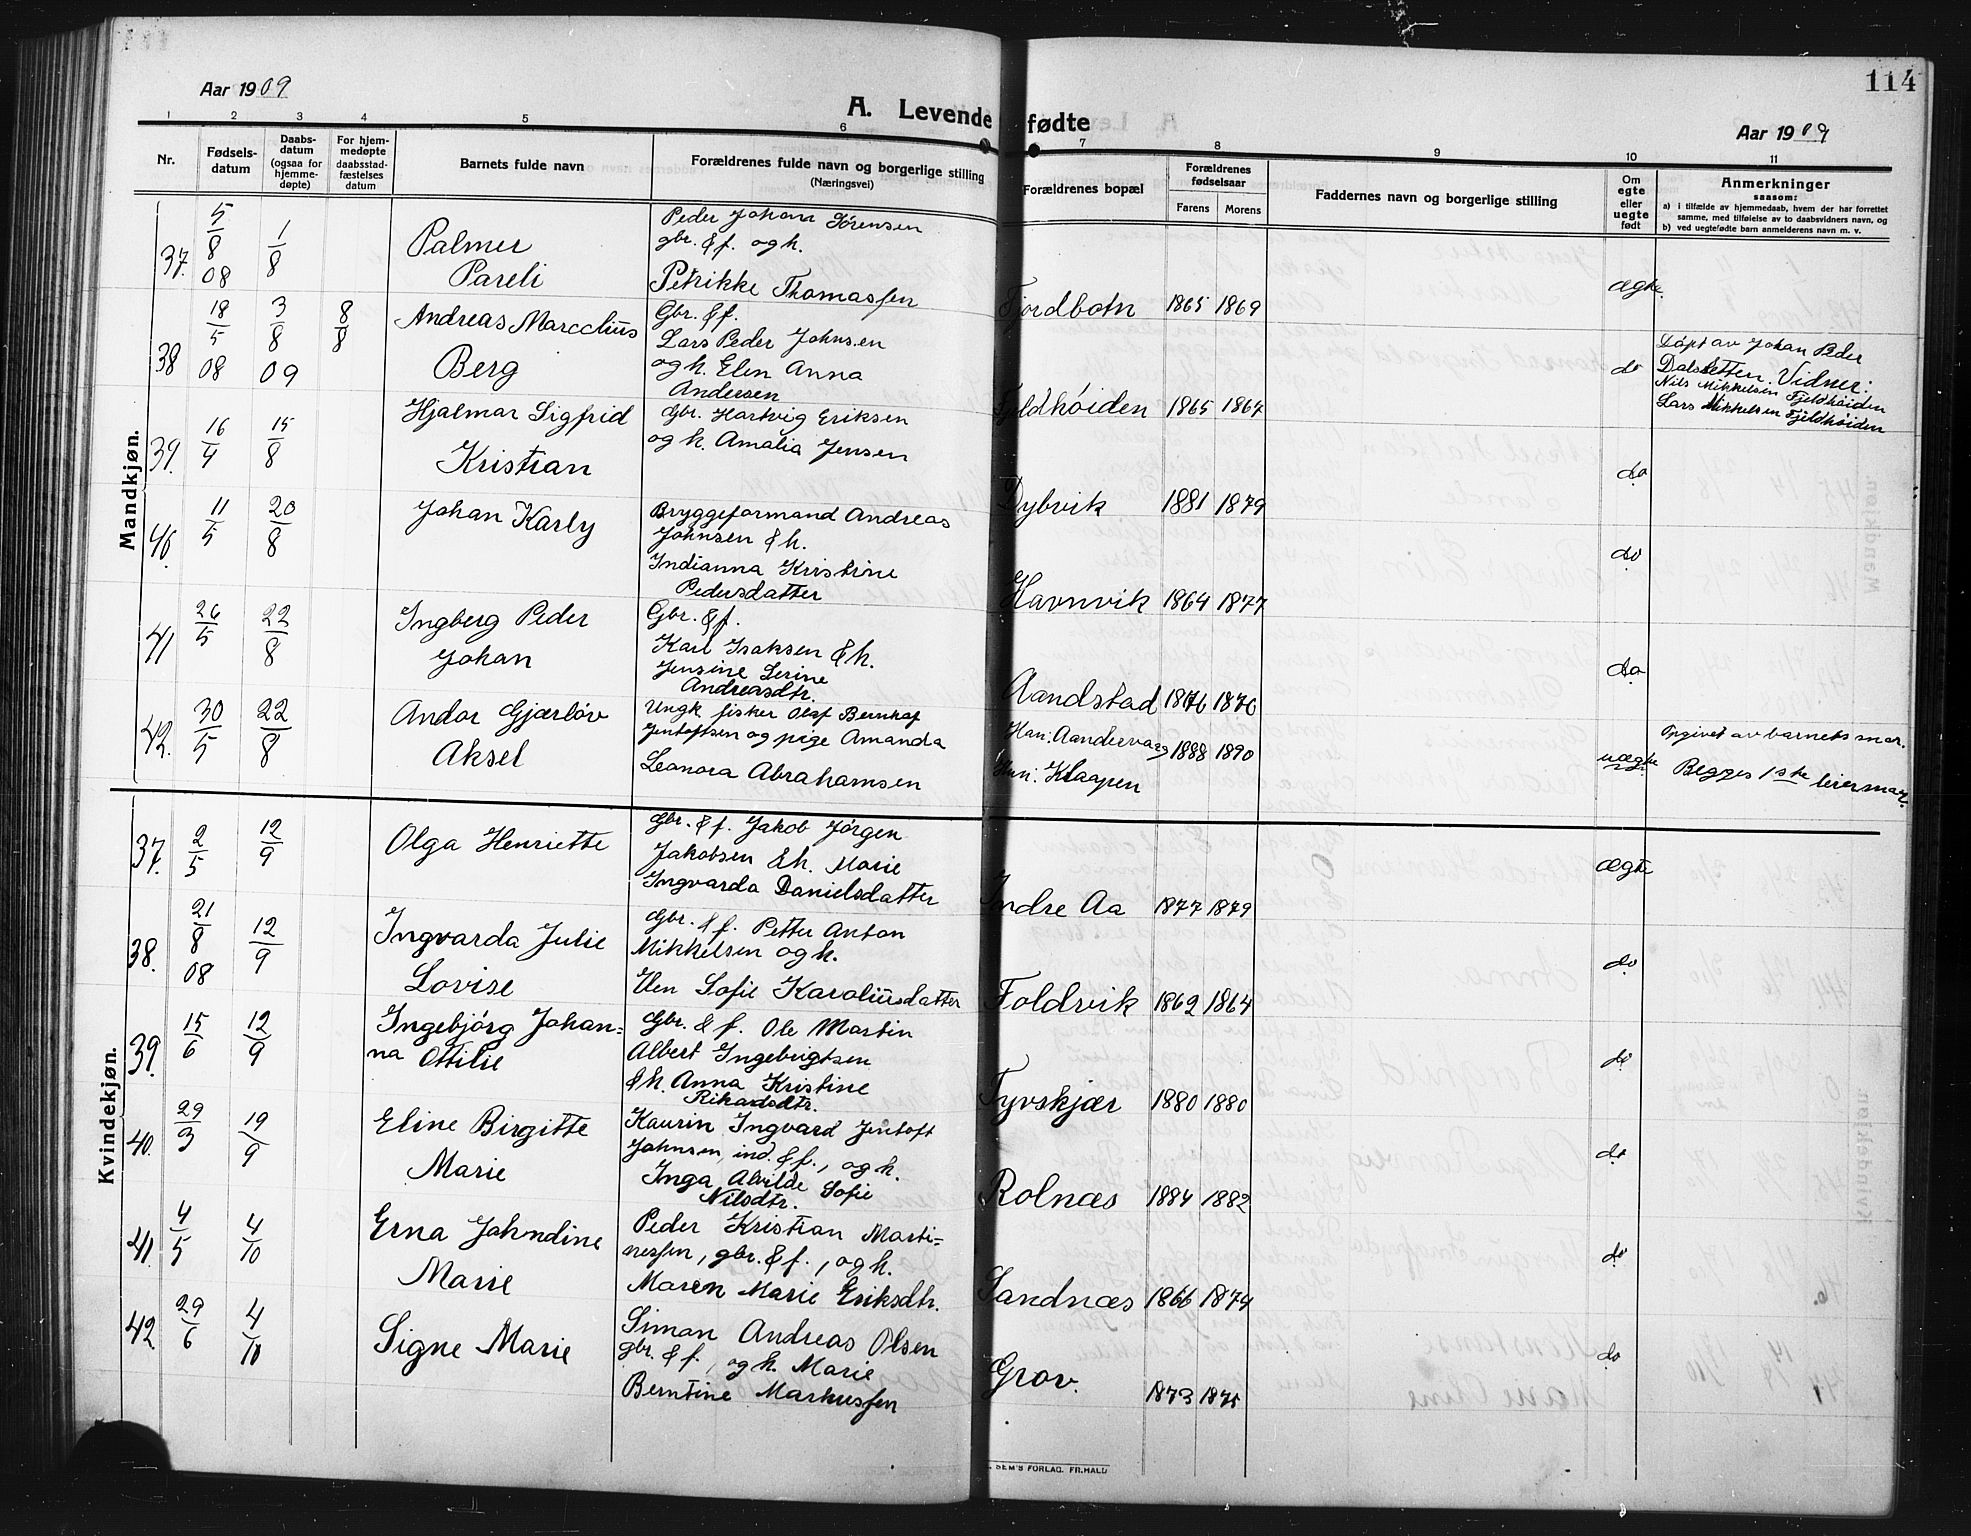 114
Aar 1909
A. Levende fødte
Aar 1909
1 2 3 4 5 6 7 8 9 10 11
Nr.
Fødsels-
datum
Daabs-
datum
(ogsaa for
hjemme-
døpte)
For hjem-
medøpte
daabsstad-
fæstelses
datum
Barnets fulde navn
Forældrenes fulde navn og borgerlige stilling
(Næringsvei)
Forældrenes bopæl
Forældrenes
fødselsaar
Farens Morens
Faddernes navn og borgerlige stilling
Om
egte
eller
uegte
født
Anmerkninger
saasom:
a) i tilfælde av hjemmedaab, hvem der har forrettet
samme, med tilføielse av to daabsvidners navn, og
b) ved uegtefødte barn anmelderens navn m. v.
Mandkjøn.
37. 5/8 08 1/8
Palmer
Pareli
Peder Johan Sørensen
gbr. & f. og h.
Petrikke Thomassen
Fjordbotn 1865 1869 ægte
38 18/5 08 3/8 09 8/8
Andreas Marcelius
Berg
Gbr. & f.
Lars Peder Johnsen
og h. Elen Anna
Andersen
Fjeldhöiden 1865 1867 do
Döpt av Johan Peder
Dalsletten. Vidner:
Nils Mikkelsen Fjeldhöiden
Lars Mikkelsen Fjeldhöiden
39. 16/4 15/8
Hjalmar Sigfrid
Kristian
Gbr. Hartvig Eriksen
og h. Amalia Jensen
Dybvik 1881 1879 do
40. 11/5 20/8
Johan Karly
Bryggeformand Andreas
Johnsen & h.
Indianna Kristine
Pedersdatter
Havnvik 1864 1877 do
41 26/5 22/8
Ingberg Peder
Johan
Gbr. & f.
Karl Isaksen & h.
Jensine Serine
Andreasdtr.
Aandstad 1876 1876 do
42. 30/5 22/8
Andor Gjærløv
Aksel
Ungk. fisker Olaf Bernhof
Jentoftsen og pige Amanda
Leonora Abrahamsen
Han: Aandervaag 1888 1890
Hun: Klaapen
uægte
Opgivet av barnets mor.
Begges 1ste leiermaal.
Kvindekjøn.
37. 2/5 12/9
Olga Henriette
Gbr. & f. Jakob Jörgen
Jakobsen & h. Marie
Ingvarda Danielsdatter
Indre Aa 1877 1879 ægte
38. 21/8 08 12/9
Ingvarda Julie
Lovise
Gbr. & f. Petter Anton
Mikkelsen og h.
Elen Sofie Karoliusdatter
Foldvik 1862 1864 do
39. 15/6 12/9
Ingebjörg Johan=
na Ottilie
Gbr. & f. Ole Martin
Albert Ingebrigtsen
& h. Anna Kristine
Rikardsdtr.
Tyvskjær 1880 1880 do
40. 29/3 19/9
Eline Birgitte
Marie
Kaurin Ingvard Jentoft
Johnsen, ind. & f., og h.
Inga Alvilde Sofie
Nilsdtr.
Rolnæs 1884 1882 do
41. 4/5 4/10
Erna Jahndine
Marie
Peder Kristian Marti=
nessen, gbr. & f., og h.
Maren Marie Eriksdtr.
Sandnæs 1866 1874 do
42 29/6 4/10
Signe Marie
Simon Andreas Olsen
gbr. & f., og h. Marie
Berntine Markussen
Grov. 1873 1875 do
SEM'S FORLAG. FR.HALD